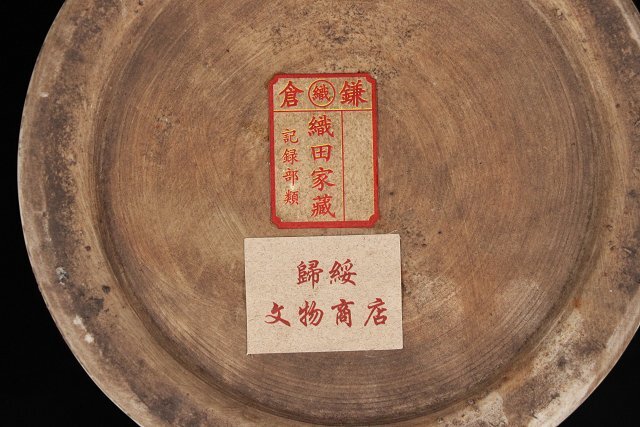 鎌㊂倉
織田家藏
記録部類
歸綏
文物商店